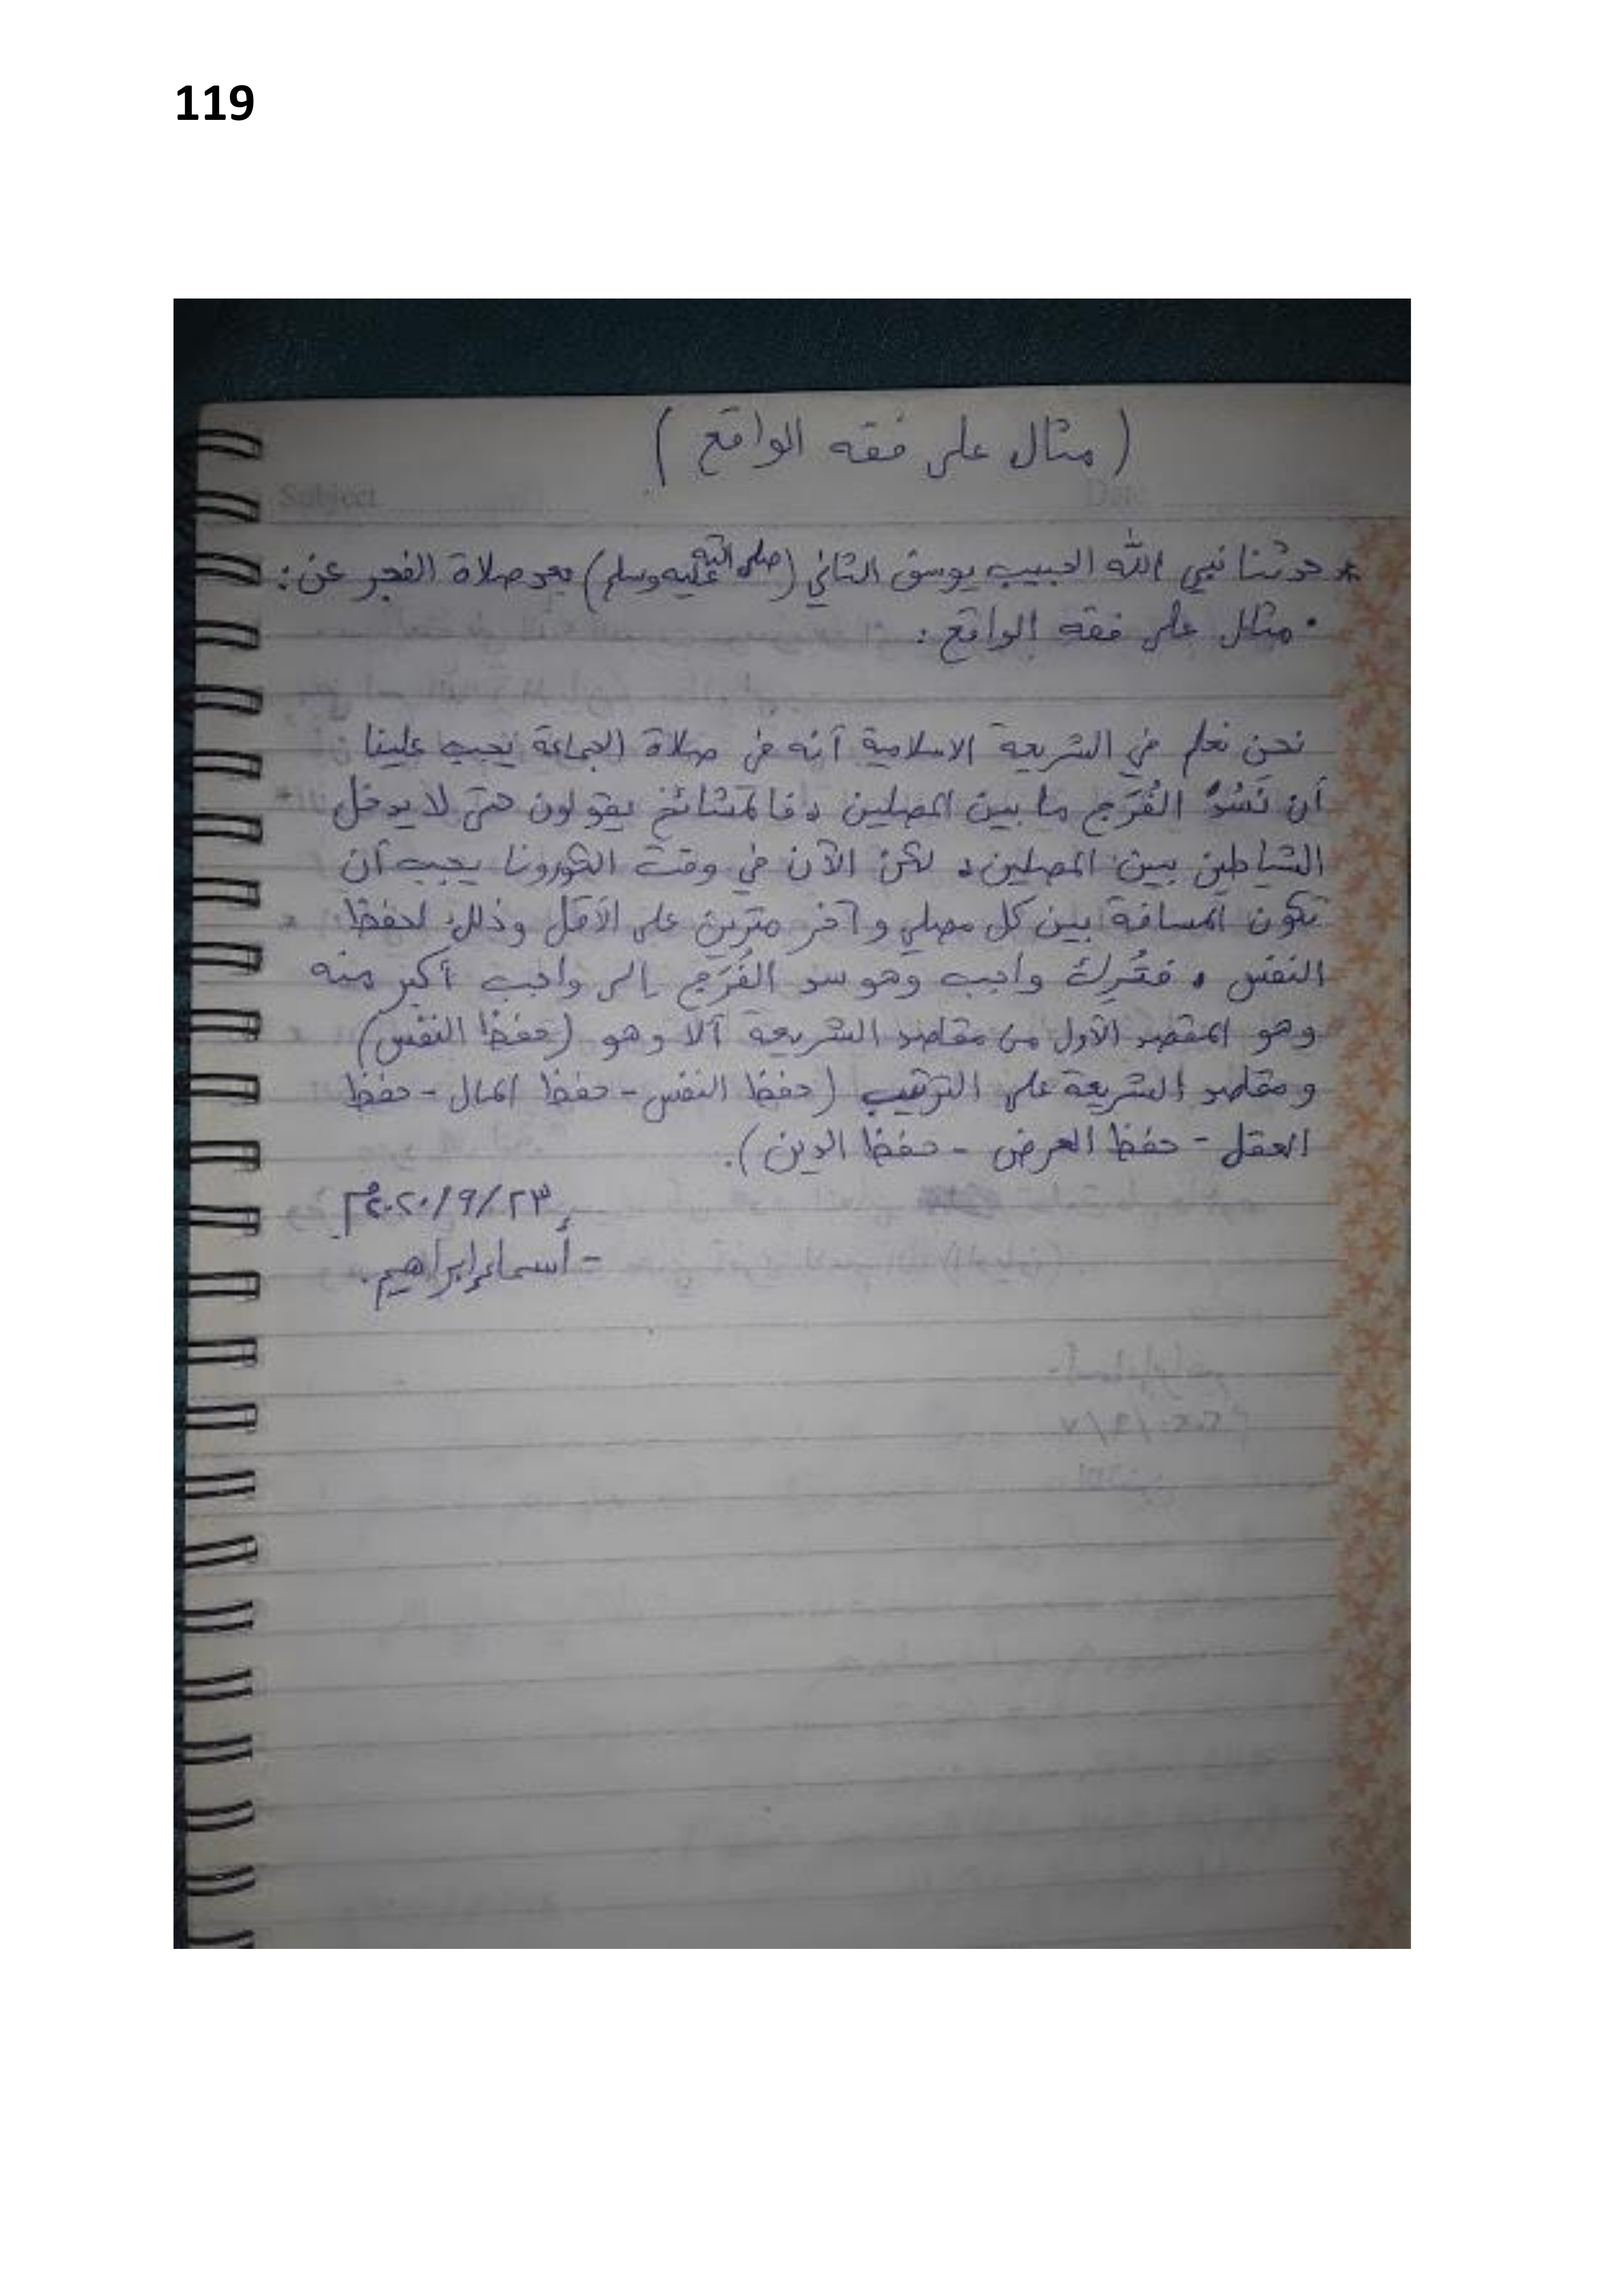 119
( مثال على فقه الواقع )
Subject
Date
* حدثنا نبي الله الحبيب يوسف الثاني (صلى الله عليه وسلم) بعد صلاة الفجر عن :
• مثال على فقه الواقع :
نحن نعلم في الشريعة الاسلامية أنه في صلاة الجماعة يجب علينا
أن نَسُدَّ الفُرَج ما بين المصلين ، فالمشائخ يقولون حتى لا يدخل
الشياطين بين المصلين ، لكن الآن في وقت الكورونا يجب أن
تكون المسافة بين كل مصلي و آخر مترين على الأقل وذلك لحفظ
النفس ، فتُرِك واجب وهو سد الفُرَج إلى واجب أكبر منه
وهو المقصد الأول من مقاصد الشريعة ألا وهو (حفظ النفس)
و مقاصد الشريعة على الترتيب (حفظ النفس - حفظ المال - حفظ
العقل - حفظ العرض - حفظ الدين ).
٢٣/٩/٢٠٢٠م
- أسماء إبراهيم.